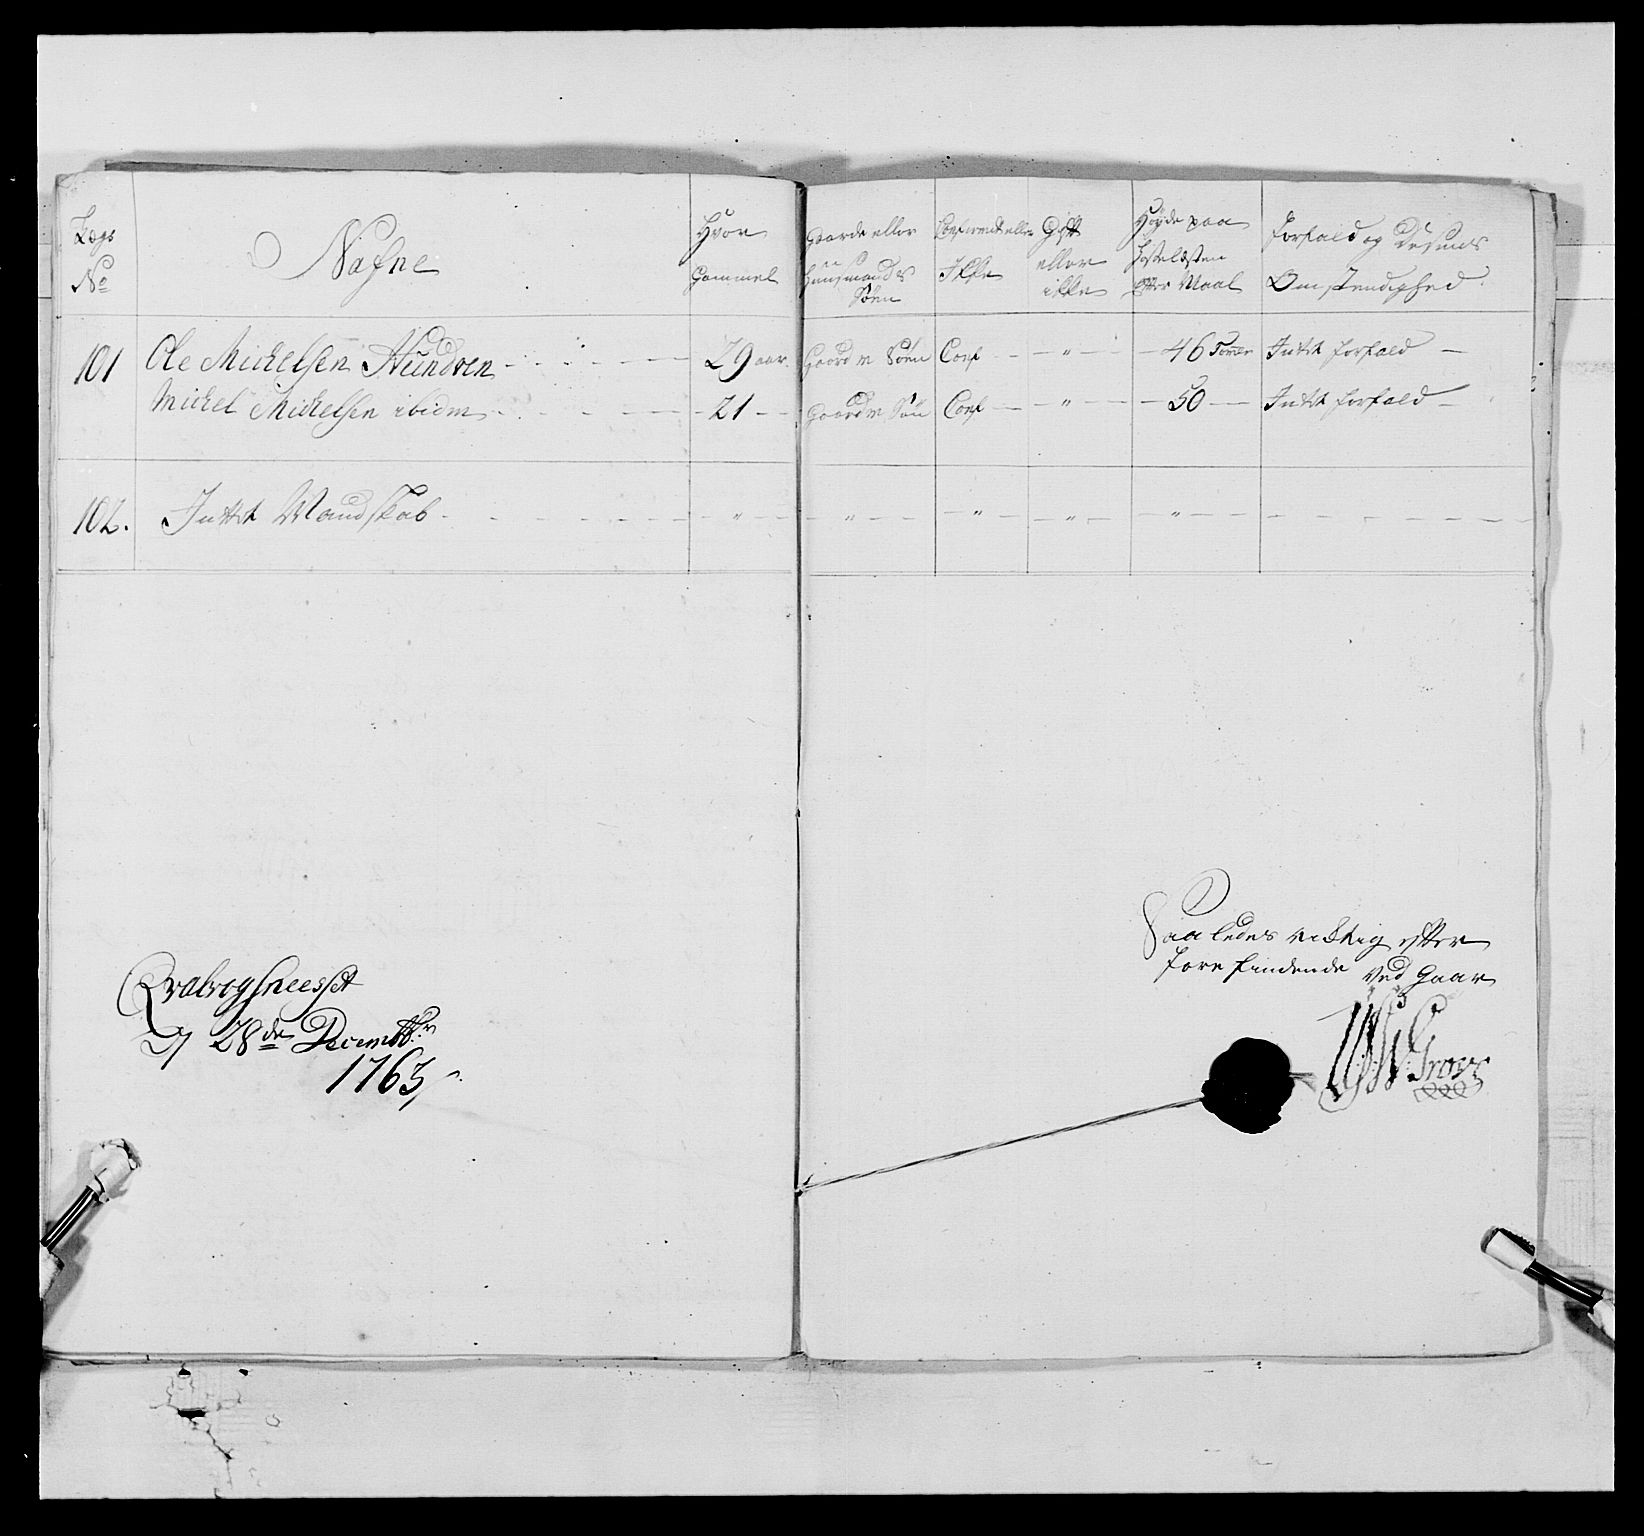 Lægs No
Nafne
Hvor Gammel
Gaards eller Huusmands Søen
Confirmert eller Ikke
Gift eller ikke
Høyde paa Hosselæsten efter Maal
Forfald og Omstendighed
101 Ole Mickelsen Nundven 29 aar Gaard m Søen Conf " 46 Tomer Intet forfald
Mickel Mickelsen ibidm 21 Gaard m Søn Conf " 50 Intet forfald
102. Intet Mandskab " " " " "
Qvalvogsneesset
D 28de Decembr
1763,
Saaledes rigtig efter
forefindende Ved Gaar